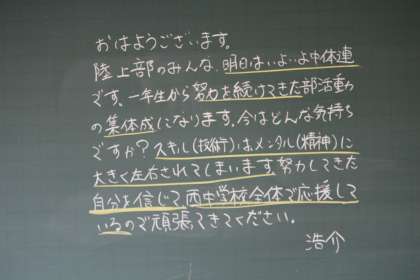 おはようございます。
陸上部のみんな、明日はいよいよ中体連
です。一年生から努力を続けてきた部活動
の集体成になります。今はどんな気持ち
ですか?スキル(技術)はメンタル(精神)に
大きく左右されてしまいます。努力してきた
自分を信じて、西中学校全体で応援して
いるので頑張ってきてください。
浩介